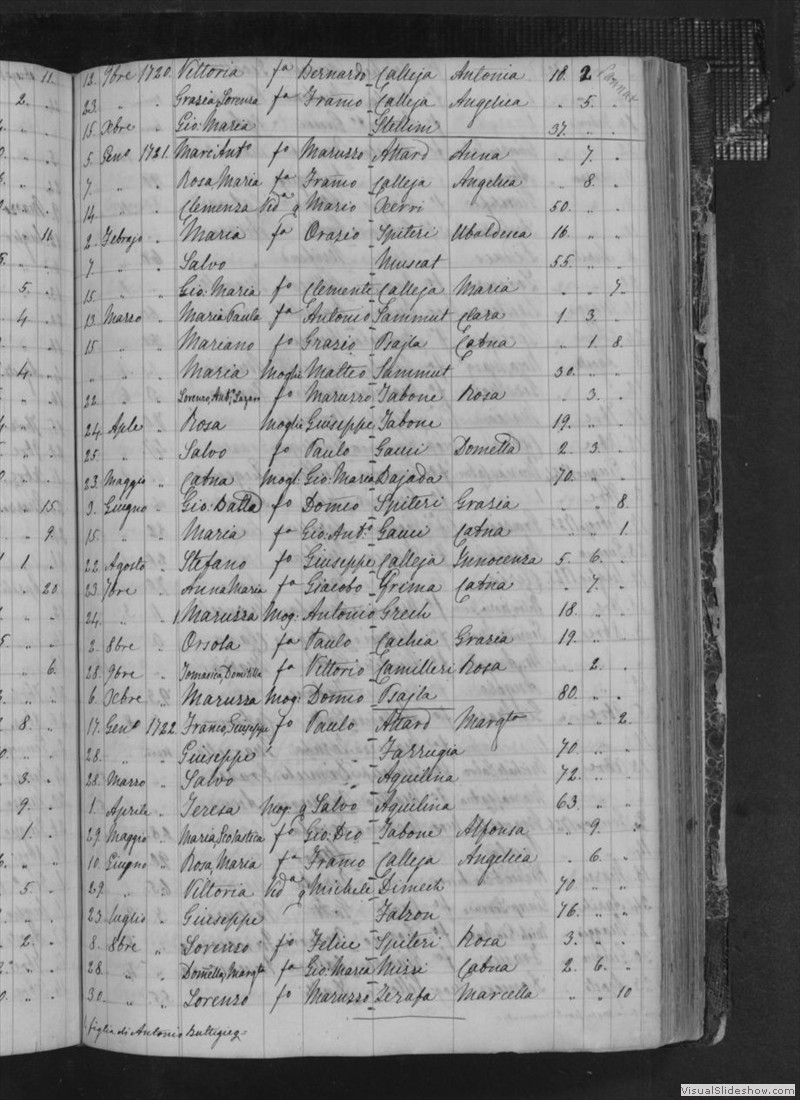 11. 12. 9bre 1720. Vittoria fa Bernardo Calleja Antonia 18. 2
2. 23. " " Grazia, Lorenza fa Franco Calleja Angelica " 5. "
15. Xbre " Gio: Maria Stellini 37. " "
5. Geno 1721. Marc'Anto fo Maruzzo Attard Anna " 7. "
7 " " Rosa, Maria fa Franco Calleja Angelica " 8. "
14. " " Clemenza Vida q Mario Xerri 50. " "
11. 2. Febrajo " Maria fa Orazio Spiteri Ubaldesca 16. " "
7 " " Salvo Muscat 55. " "
5. 15. " " Gio: Maria fo Clemente Calleja Maria " " 7.
4. 13. Marzo " Maria Paula fa Antonio Sammut Clara 1. 3. "
15 " " Mariano fo Grazio Psajla Catna " 1 8.
4. " " " Maria Moglie Matteo Sammut 30. " "
22. " " Lorenzo, Anto, Lazaro fo Maruzzo Tabone Rosa " 3. "
24. Aple " Rosa Moglie Giuseppe Tabone 19. " "
25. " " Salvo fo Paulo Gauci Dometta 2. 3. "
23. Maggio " Catna Mogl. Gio: Maria Dajada 70. " "
15. 3. Giugno " Gio: Batta fo Domco Spiteri Grazia " " 8.
9. 15. " " Maria fa Gio: Anto Gauci Catna " " 1.
1. 22. Agosto " Stefano fo Giuseppe Calleja Innocenza 5. 6. "
20. 23. 7bre " Anna Maria fa Giacobo Grima Catna " 7. "
24. " " Maruzza Mog: Antonio Grech 18. " "
2. 8bre " Orsola fa Paulo Cachia Grazia 19. " "
6. 28. 9bre " Tomasica, Domitilla fa Vittorio Camilleri Rosa " 2. "
6. Xbre " Maruzza Mog: Domco Psajla 80. " "
8. 17. Geno 1722. Franco, Giuseppe fo Paulo Attard Margta " " 2.
28. " " Giuseppe Farrugia 70. " "
3. 28. Marzo " Salvo Aquilina 72. " "
9. 1. Aprile " Teresa Mog. q Salvo Aquilina 63. " "
1. 29. Maggio " Maria Scolastica fa Gio: Dio Tabone Alfonsa " 9. "
10. Giugno " Rosa, Maria fa Franco Calleja Angelica " 6. "
5. 29. " " Vittoria Vida q Michele Dimech 70 " "
23. Luglio " Giuseppe Falzon 76. " "
2. 8. 8bre " Lorenzo fo Felice Spiteri Rosa 3. " "
28. " " Dometta, Margta fa Gio: Maria Missi Catna 2. 6. "
30. " " Lorenzo fo Maruzzo Zerafa Marcella " " 10
figlia di Antonio Buttigieg
VisualSlideshow.com